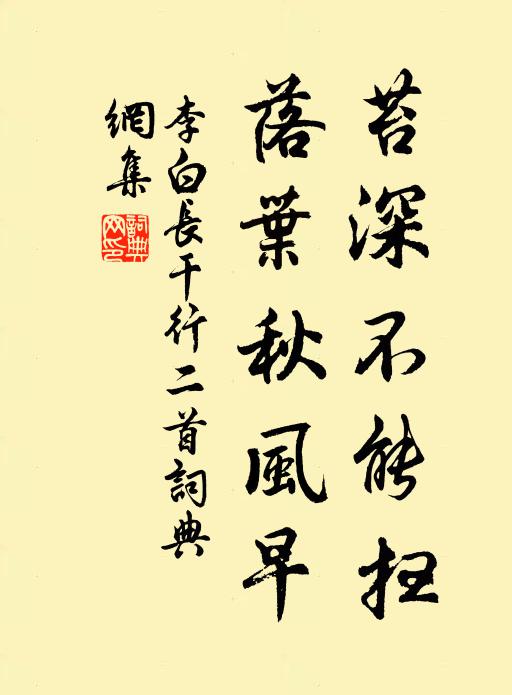 苔深不能扫
落葉秋風早
李白長干行二首詞典
網集
詞典
网印